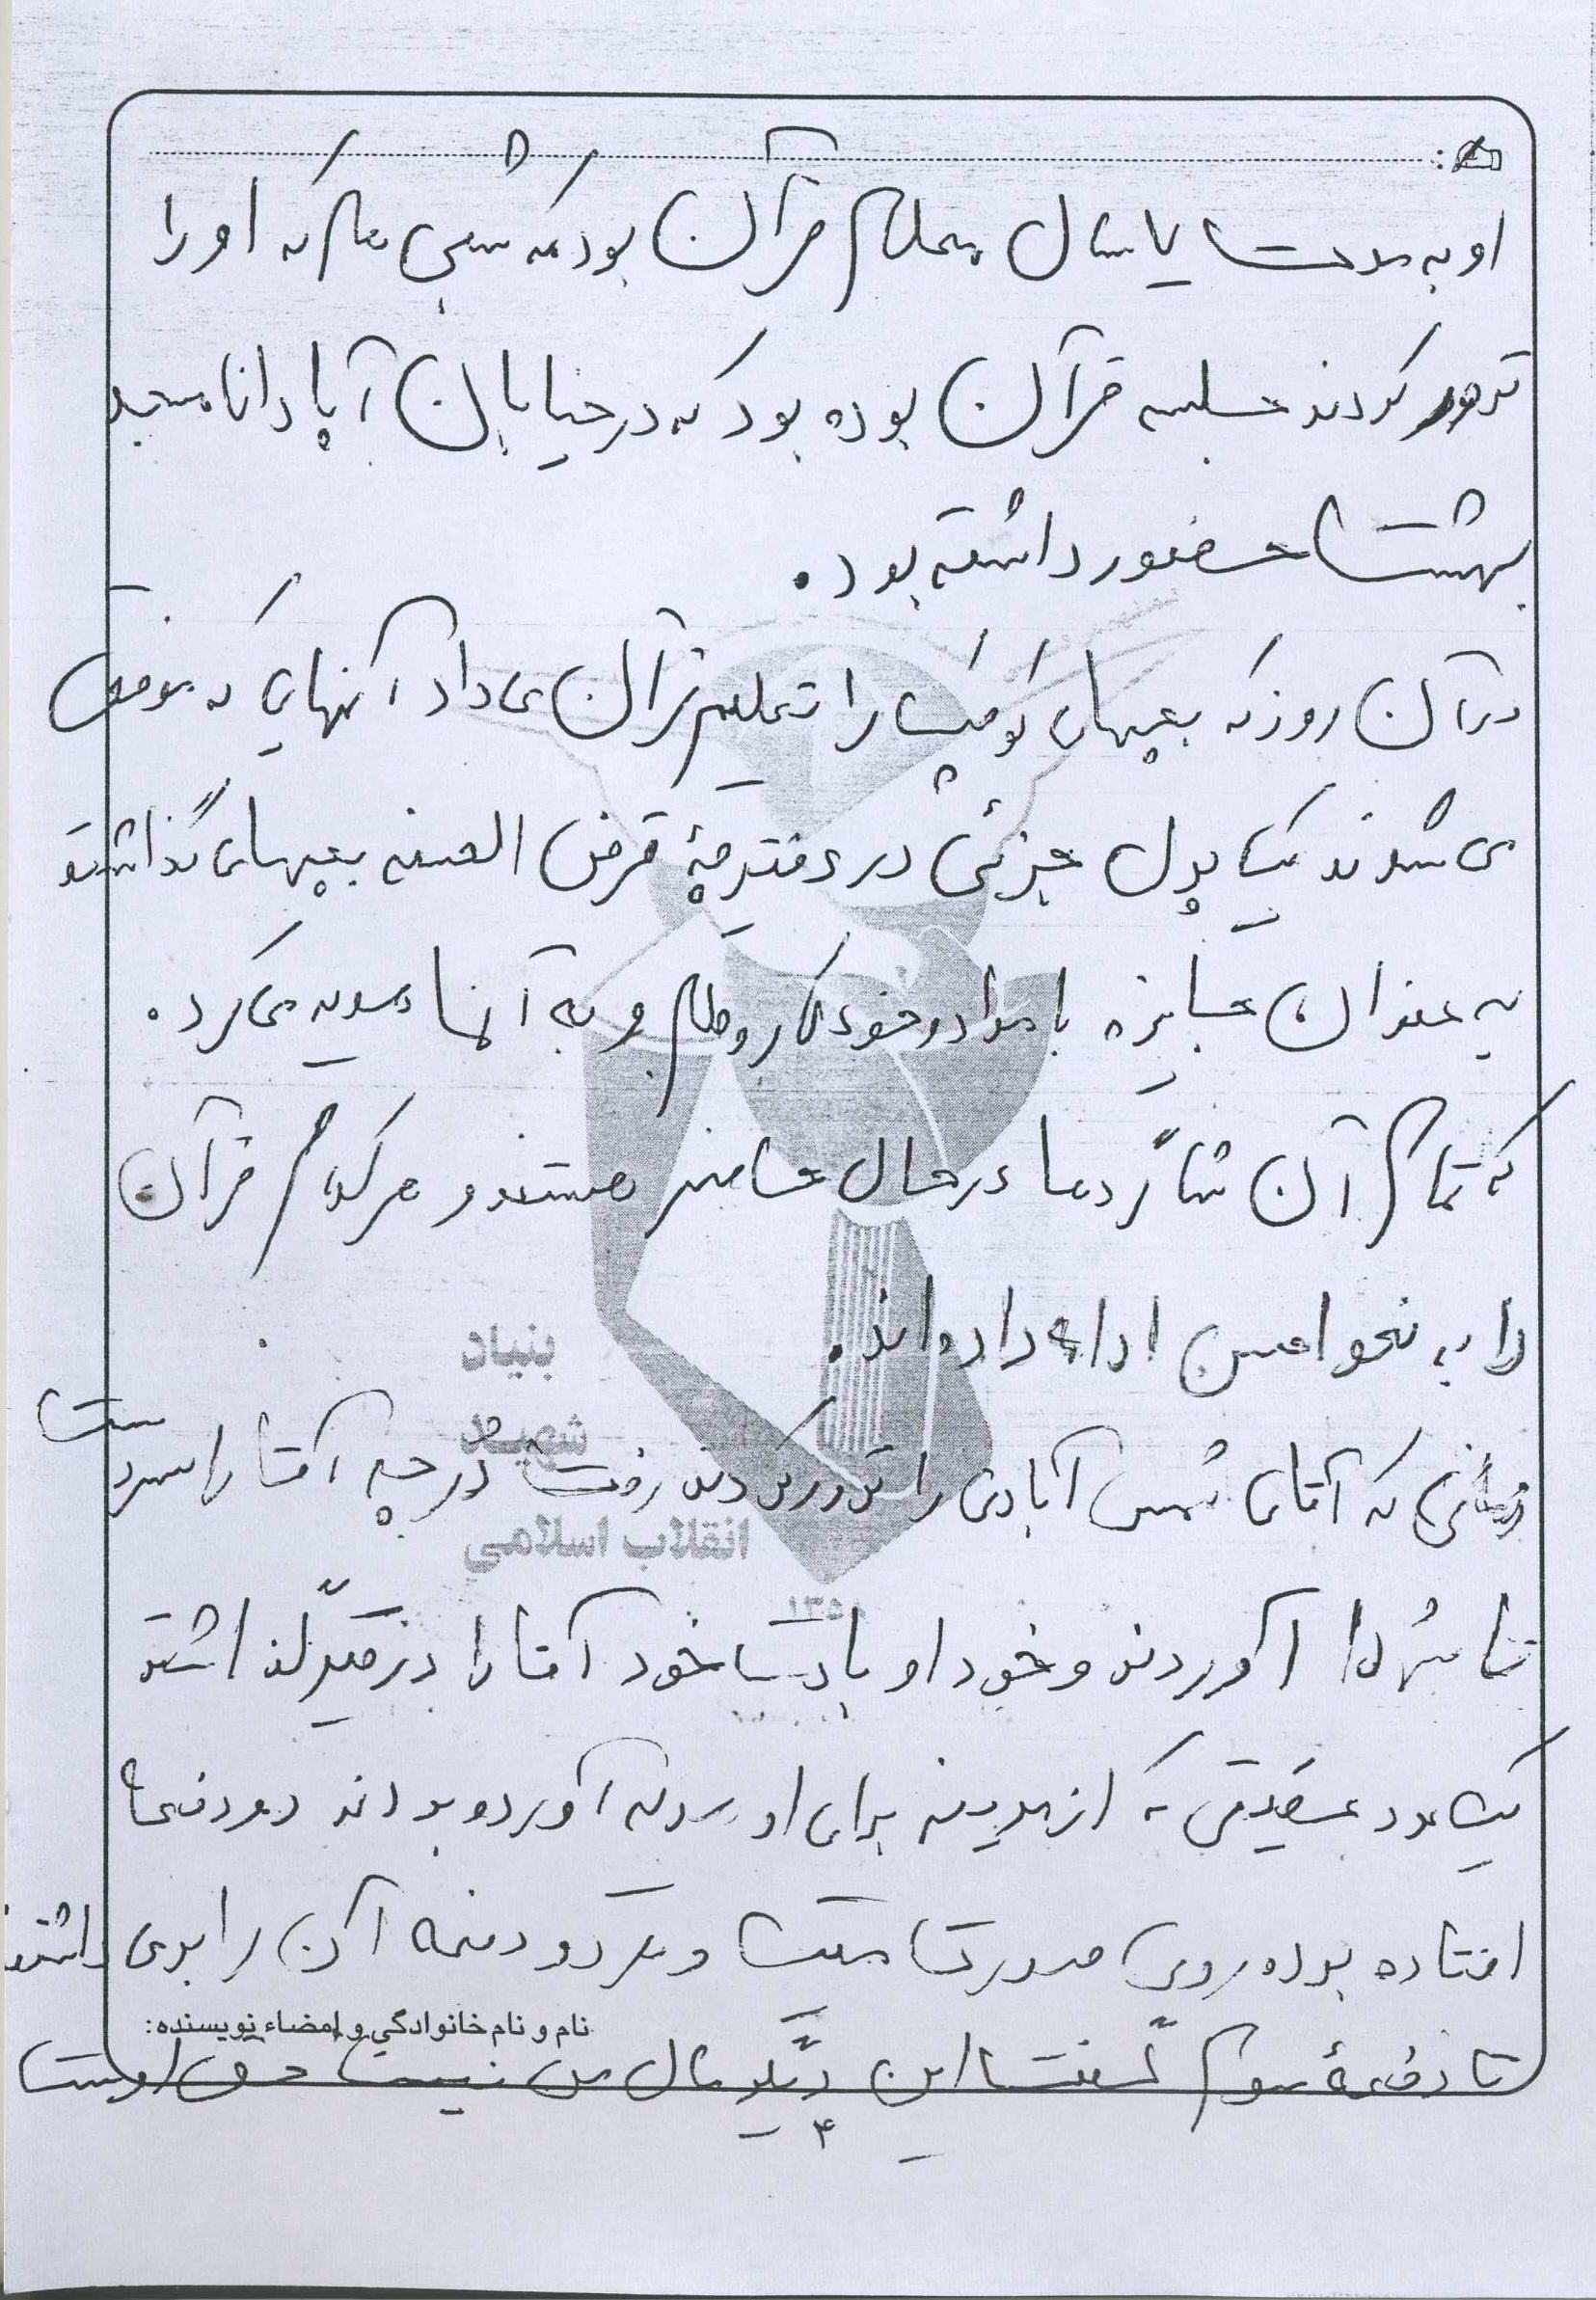 او به مدت یا سال معلم قرآن بود که شبی هم که او را
ترور کردند جلسه قرآن بوده بود که در خیابان آپادانا مسجد
بهشت حضور داشته بود.
در آن روز که بچهای کوچک را تعلیم قرآن می داد آنهای که موفق
می شوند یک پول جزئی در دفترچهٔ قرض الحسنه بچهای گذاشته
به عنوان جایزه با مداد و خودکار و قلم و به آنها هدیه می کرد.
که تمام آن شاگردها در حال حاضر هستند و هر کدام قرآن
را به نحو احسن ادامه داده اند.
زمانی که آقای شمس آبادی را ترور کردند رفت درچه آقا را
تا آوردند و خود او با دست خود آقا را در قبر گذاشته
یک عدد عقیقی که از مدینه برای او آورده بودند دو دفعه
افتاده بوده روی صورت میت و هر دو دفعه آن را برمی داشته
تا دفعهٔ سوم گفت این دیگر مال من نیست حق اوست
بنیاد
شهید
انقلاب اسلامی
نام و نام خانوادگی و امضاء نویسنده:
۴